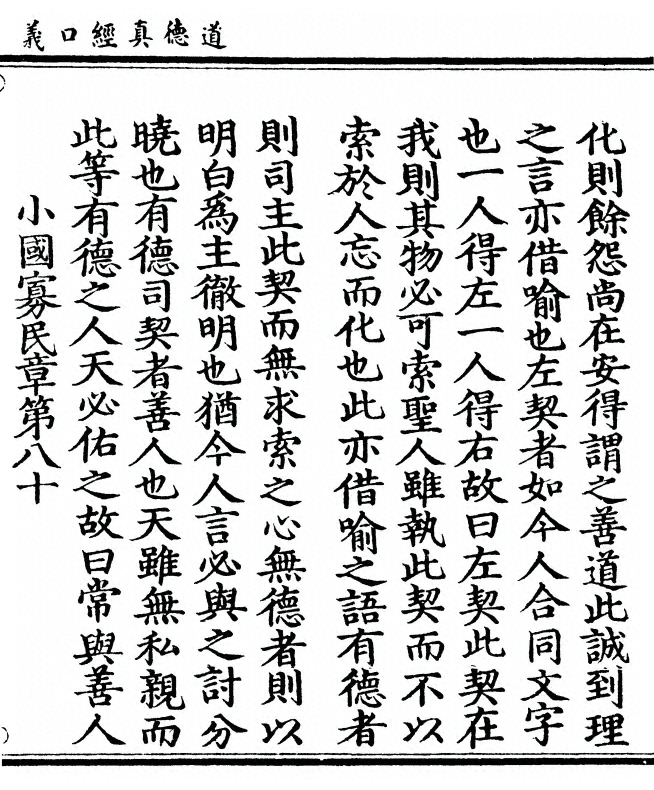 道德真經口義
化則餘怨尚在安得謂之善道此誠到理
之言亦借喻也左契者如今人合同文字
也一人得左一人得右故曰左契此契在
我則其物必可索聖人雖執此契而不以
索於人忘而化也此亦借喻之語有德者
則司主此契而無求索之心無德者則以
明白爲主徹明也猶今人言必與之討分
曉也有德司契者善人也天雖無私親而
此等有德之人天必佑之故曰常與善人
小國寡民章第八十